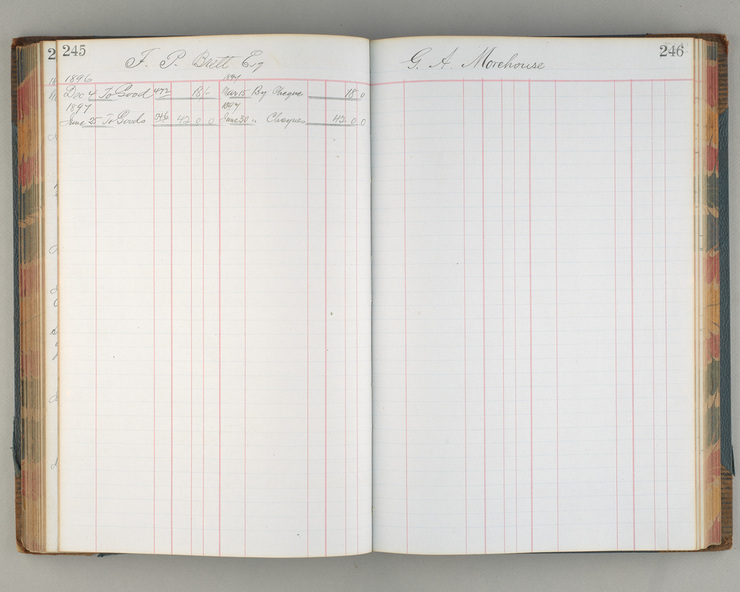 2 245 F. P. Brett Esq
1896
Dec 4 To Good 472 18 - By Cheque 18 0
1897 1897
June 25 To Goods 546 42 0 0 June 30 " Cheques 42 0 0
G. A. Morehouse 246